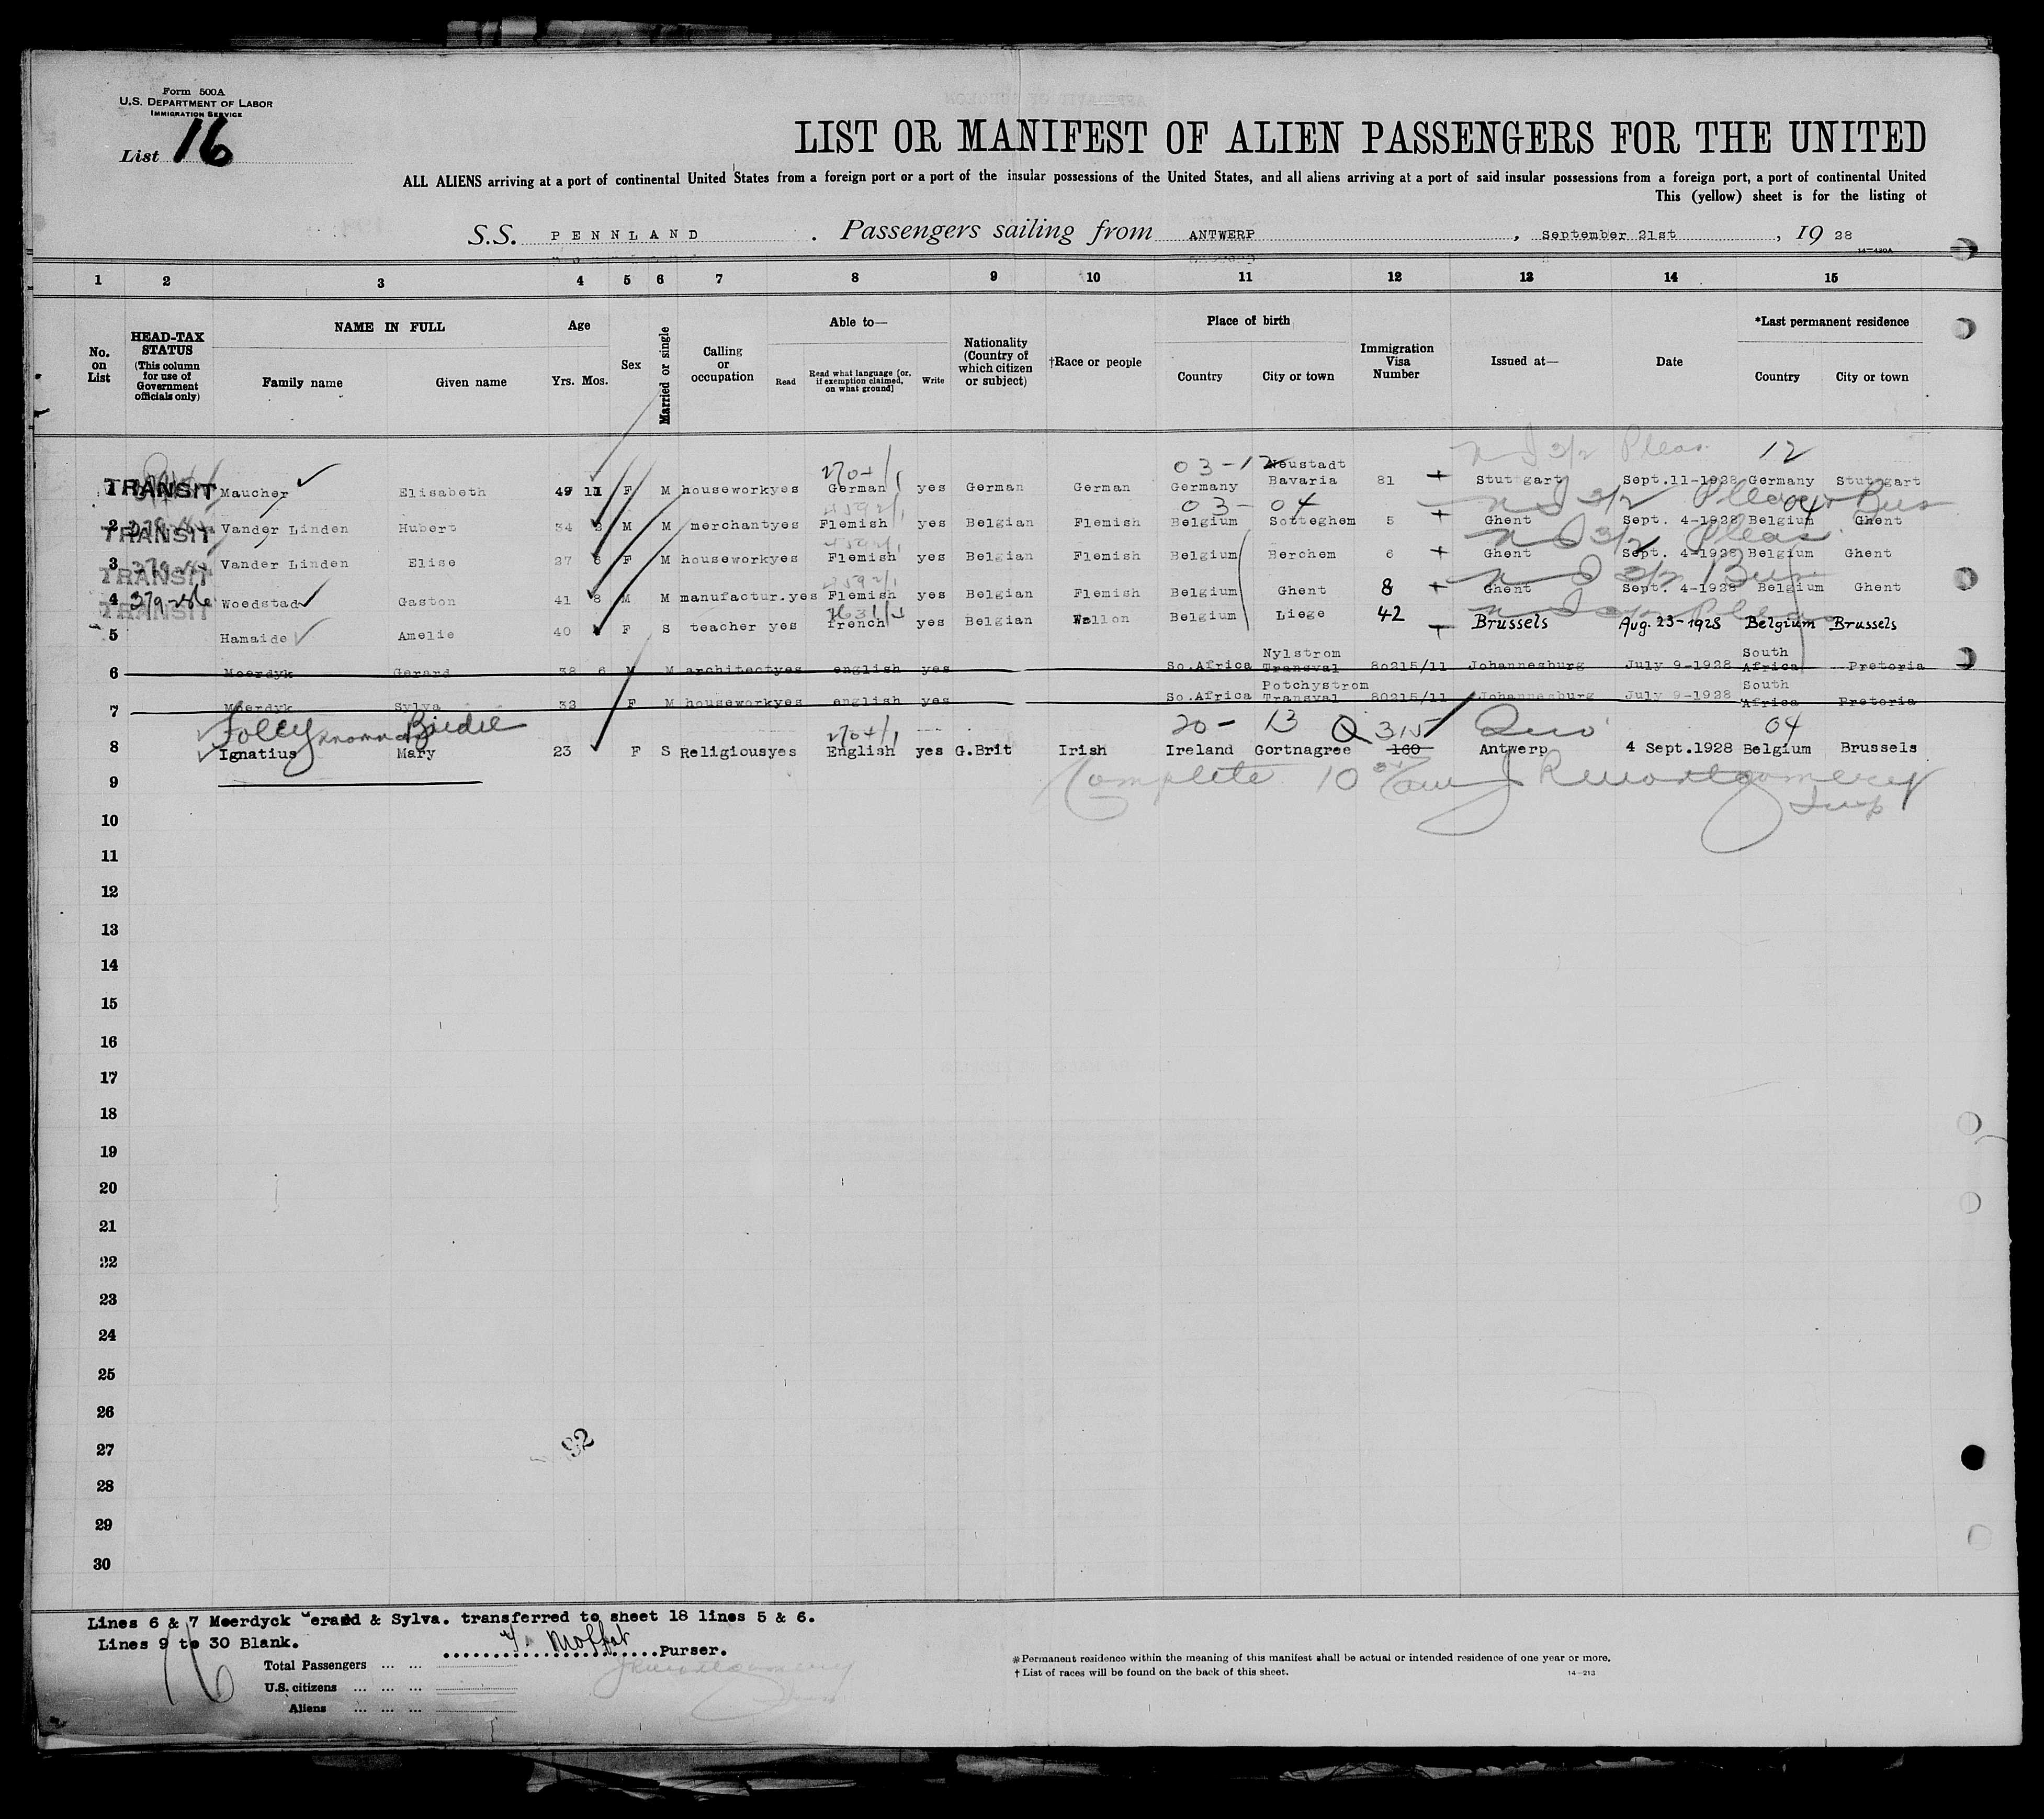 Form 500A
U.S. DEPARTMENT OF LABOR
IMMIGRATION SERVICE
List 16
LIST OR MANIFEST OF ALIEN PASSENGERS FOR THE UNITED
ALL ALIENS arriving at a port of continental United States from a foreign port or a port of the insular possessions of the United States, and all aliens arriving at a port of said insular possessions from a foreign port, a port of continental United
This (yellow) sheet is for the listing of
S.S. PENNLAND. Passengers sailing from ANTWERP, September 21st, 19 28
14-430A
1 2 3 4 5 6 7 8 9 10 11 12 13 14 15
No. on List
HEAD-TAX STATUS (This column for use of Government officials only)
NAME IN FULL
Family name Given name
Age
Yrs. Mos.
Sex
Married or single
Calling or occupation
Able to—
Read
Read what language [or, if exemption claimed, on what ground]
Write
Nationality (Country of which citizen or subject)
†Race or people
Place of birth
Country City or town
Immigration Visa Number
Issued at—
Date
*Last permanent residence
Country City or town
270+/1 03-12 12
1 TRANSIT Maucher Elisabeth 49 11 F M housework yes German yes German German Germany Neustadt Bavaria 81 Stuttgart Sept.11-1928 Germany Stuttgart
03-04 04
2 TRANSIT Vander Linden Hubert 34 M M merchant yes Flemish yes Belgian Flemish Belgium Sotteghem 5 Ghent Sept. 4-1928 Belgium Ghent
3 TRANSIT Vander Linden Elise 27 F M housework yes Flemish yes Belgian Flemish Belgium Berchem 6 Ghent Sept. 4-1928 Belgium Ghent
4 TRANSIT Woedstad Gaston 41 8 M M manufactur. yes Flemish yes Belgian Flemish Belgium Ghent 8 Ghent Sept. 4-1928 Belgium Ghent
5 Hamaide Amelie 40 F S teacher yes french yes Belgian Wallon Belgium Liege 42 Brussels Aug. 23-1928 Belgium Brussels
6 Moerdyk Gerard 38 6 M M architect yes english yes So.Africa Nylstrom Transval 80215/11 Johannesburg July 9-1928 South Africa Pretoria
7 Moerdyk Sylva 32 F M housework yes english yes So.Africa Potchystrom Transval 80215/11 Johannesburg July 9-1928 South Africa Pretoria
Folley known as Birdie 270+/1 20-13 Q 315 04
8 Ignatius Mary 23 F S Religious yes English yes G.Brit Irish Ireland Gortnagree 160 Antwerp 4 Sept.1928 Belgium Brussels
9 Complete
10
11
12
13
14
15
16
17
18
19
20
21
22
23
24
25
26
27
28
29
30
92
Lines 6 & 7 Moerdyck erard & Sylva. transferred to sheet 18 lines 5 & 6.
Lines 9 to 30 Blank.
Moffat Purser.
16
Total Passengers
U.S. citizens
Aliens
*Permanent residence within the meaning of this manifest shall be actual or intended residence of one year or more.
†List of races will be found on the back of this sheet.
14-213